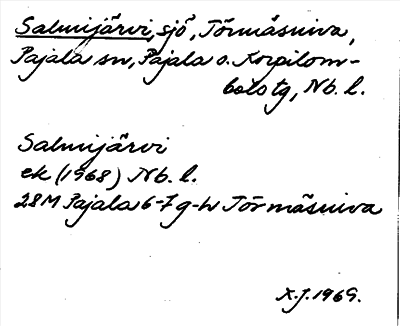 Salmijärvi, sjö, Törmäsniva,
Pajala sn, Pajala o. Korpilom-
bolo tg, Nb. l.
Salmijärvi
ek (1968) Nb. l.
28M Pajala 6-7 g-h Törmäsniva
X.J. 1969.